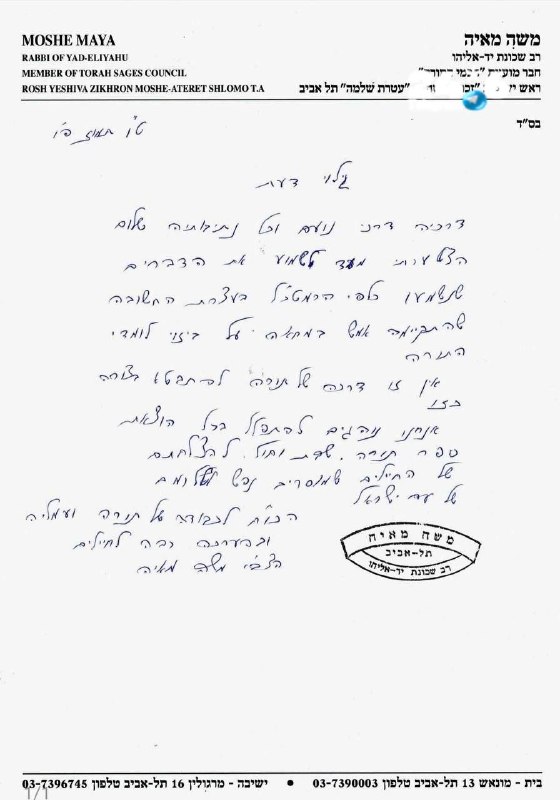 MOSHE MAYA
RABBI OF YAD-ELIYAHU
MEMBER OF TORAH SAGES COUNCIL
ROSH YESHIVA ZIKHRON MOSHE-ATERET SHLOMO T.A
משה מאיה
רב שכונת יד-אליהו
חבר מועצת "חכמי התורה"
ראש "עטרת שלמה" תל אביב
בס"ד
ט"ו תמוז פ"ו
גילוי דעת
דרכיה דרכי נועם וכל נתיבותיה שלום
הצטערתי מאד לשמוע את הדברים
שנשמעו כלפי הרמטכ"ל בעצרת החשובה
שהתקיימה אמש במחאה על ביזוי לומדי
התורה
אין זו דרכה של תורה להתבטא בצורה
כזו
אנחנו נוהגים להתפלל בכל הוצאת
ספר תורה, שבת וחול, להצלחתם
של החיילים שמוסרים נפש לשלומם
של עם ישראל
הכו"ח לכבודה של תורה ועמליה
ובהערכה רבה לחיילים
הצב"י משה מאיה
משה מאיה
תל-אביב
רב שכונת יד-אליהו
בית - מונאש 13 תל-אביב טלפון 03-7390003 • ישיבה - מרגולין 16 תל-אביב טלפון 03-7396745
1/1